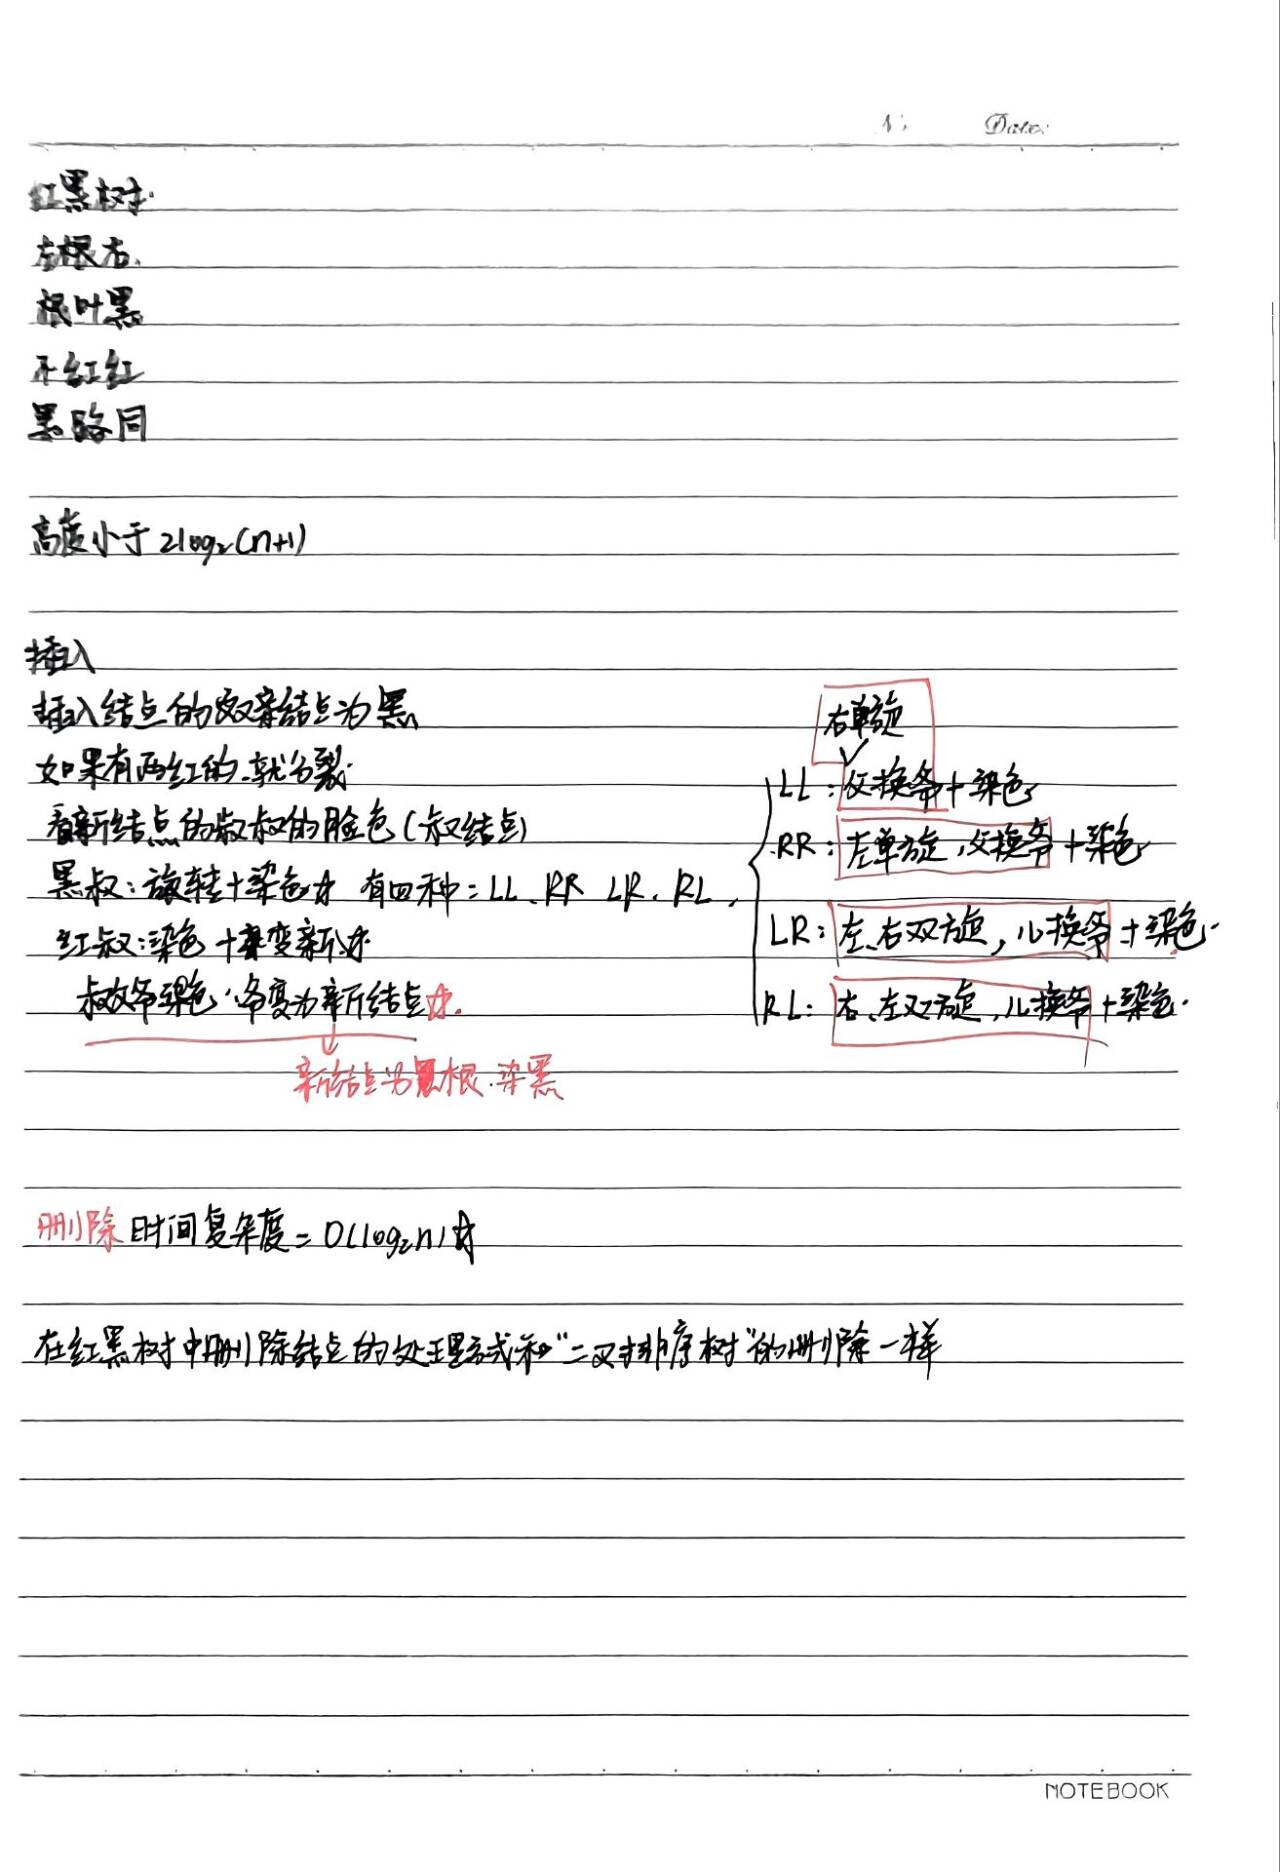 Date:
红黑树
左根右.
根叶黑
不红红
黑路同
高度小于 2log₂(n+1)
插入
插入结点的双亲结点为黑
如果有两红的.就分裂
看新结点的叔叔的脸色(叔结点)
黑叔:旋转+染色☆ 有四种:LL、RR LR、RL,
红叔:染色+变新☆
叔父爷染色,爷变为新结点☆.
新结点为根.染黑
右单旋
LL:父换爷+染色
RR:左单旋,父换爷+染色
LR:左、右双旋,儿换爷+染色.
RL:右、左双旋,儿换爷+染色.
删除 时间复杂度=O(log₂n)☆
在红黑树中删除结点的处理方式和“二叉排序树”的删除一样
NOTEBOOK